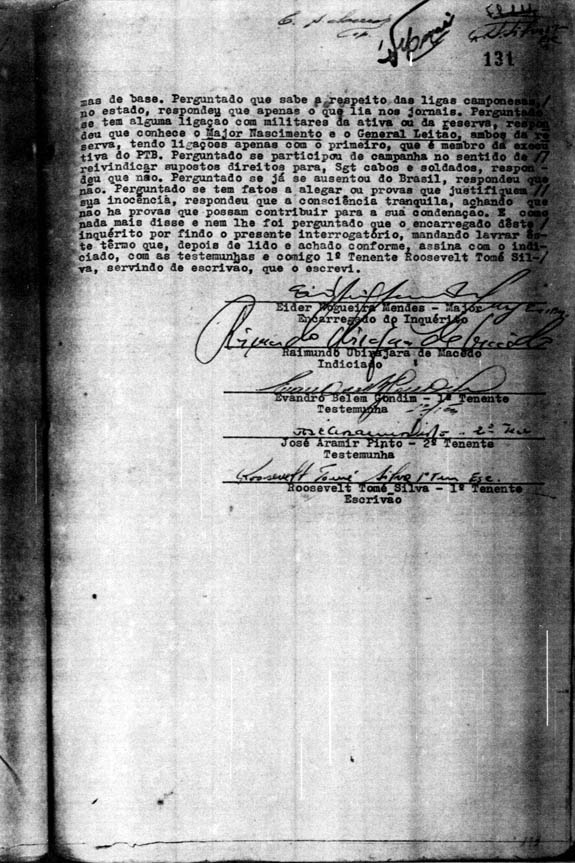 131
mas de base. Perguntado que sabe a respeito das ligas camponesas,/
no estado, respondeu que apenas o que lia nos jornais. Perguntado
se tem alguma ligação com militares da ativa ou da reserva, respon
deu que conhece o Major Nascimento e o General Leitao, ambos da re
serva, tendo ligações apenas com o primeiro, que é membro da execu
tiva do PTB. Perguntado se participou de campanha no sentido de //
reivindicar supostos direitos para, Sgt cabos e soldados, respon-
deu que não. Perguntado se já se ausentou do Brasil, respondeu que
não. Perguntado se tem fatos a alegar ou provas que justifiquem //
sua inocência, respondeu que a consciência tranquila, achando que
não ha provas que possam contribuir para a sua condenação. E como
nada mais disse e nem lhe foi perguntado que o encarregado dêste /
inquérito por findo o presente interrogatório, mandando lavrar ês-
te têrmo que, depois de lido e achado conforme, assina com o indi-
ciado, com as testemunhas e comigo 1º Tenente Roosevelt Tomé Sil-/
va, servindo de escrivão, que o escrevi.
Eider Nogueira Mendes - Major
Encarregado do Inquérito
Raimundo Ubirajara de Macedo
Indiciado
Evandro Belem Gondim - 1º Tenente
Testemunha
José Aramir Pinto - 2º Ten
José Aramir Pinto - 2º Tenente
Testemunha
Roosevelt Tomé Silva 1º Ten Esc.
Roosevelt Tomé Silva - 1º Tenente
Escrivão